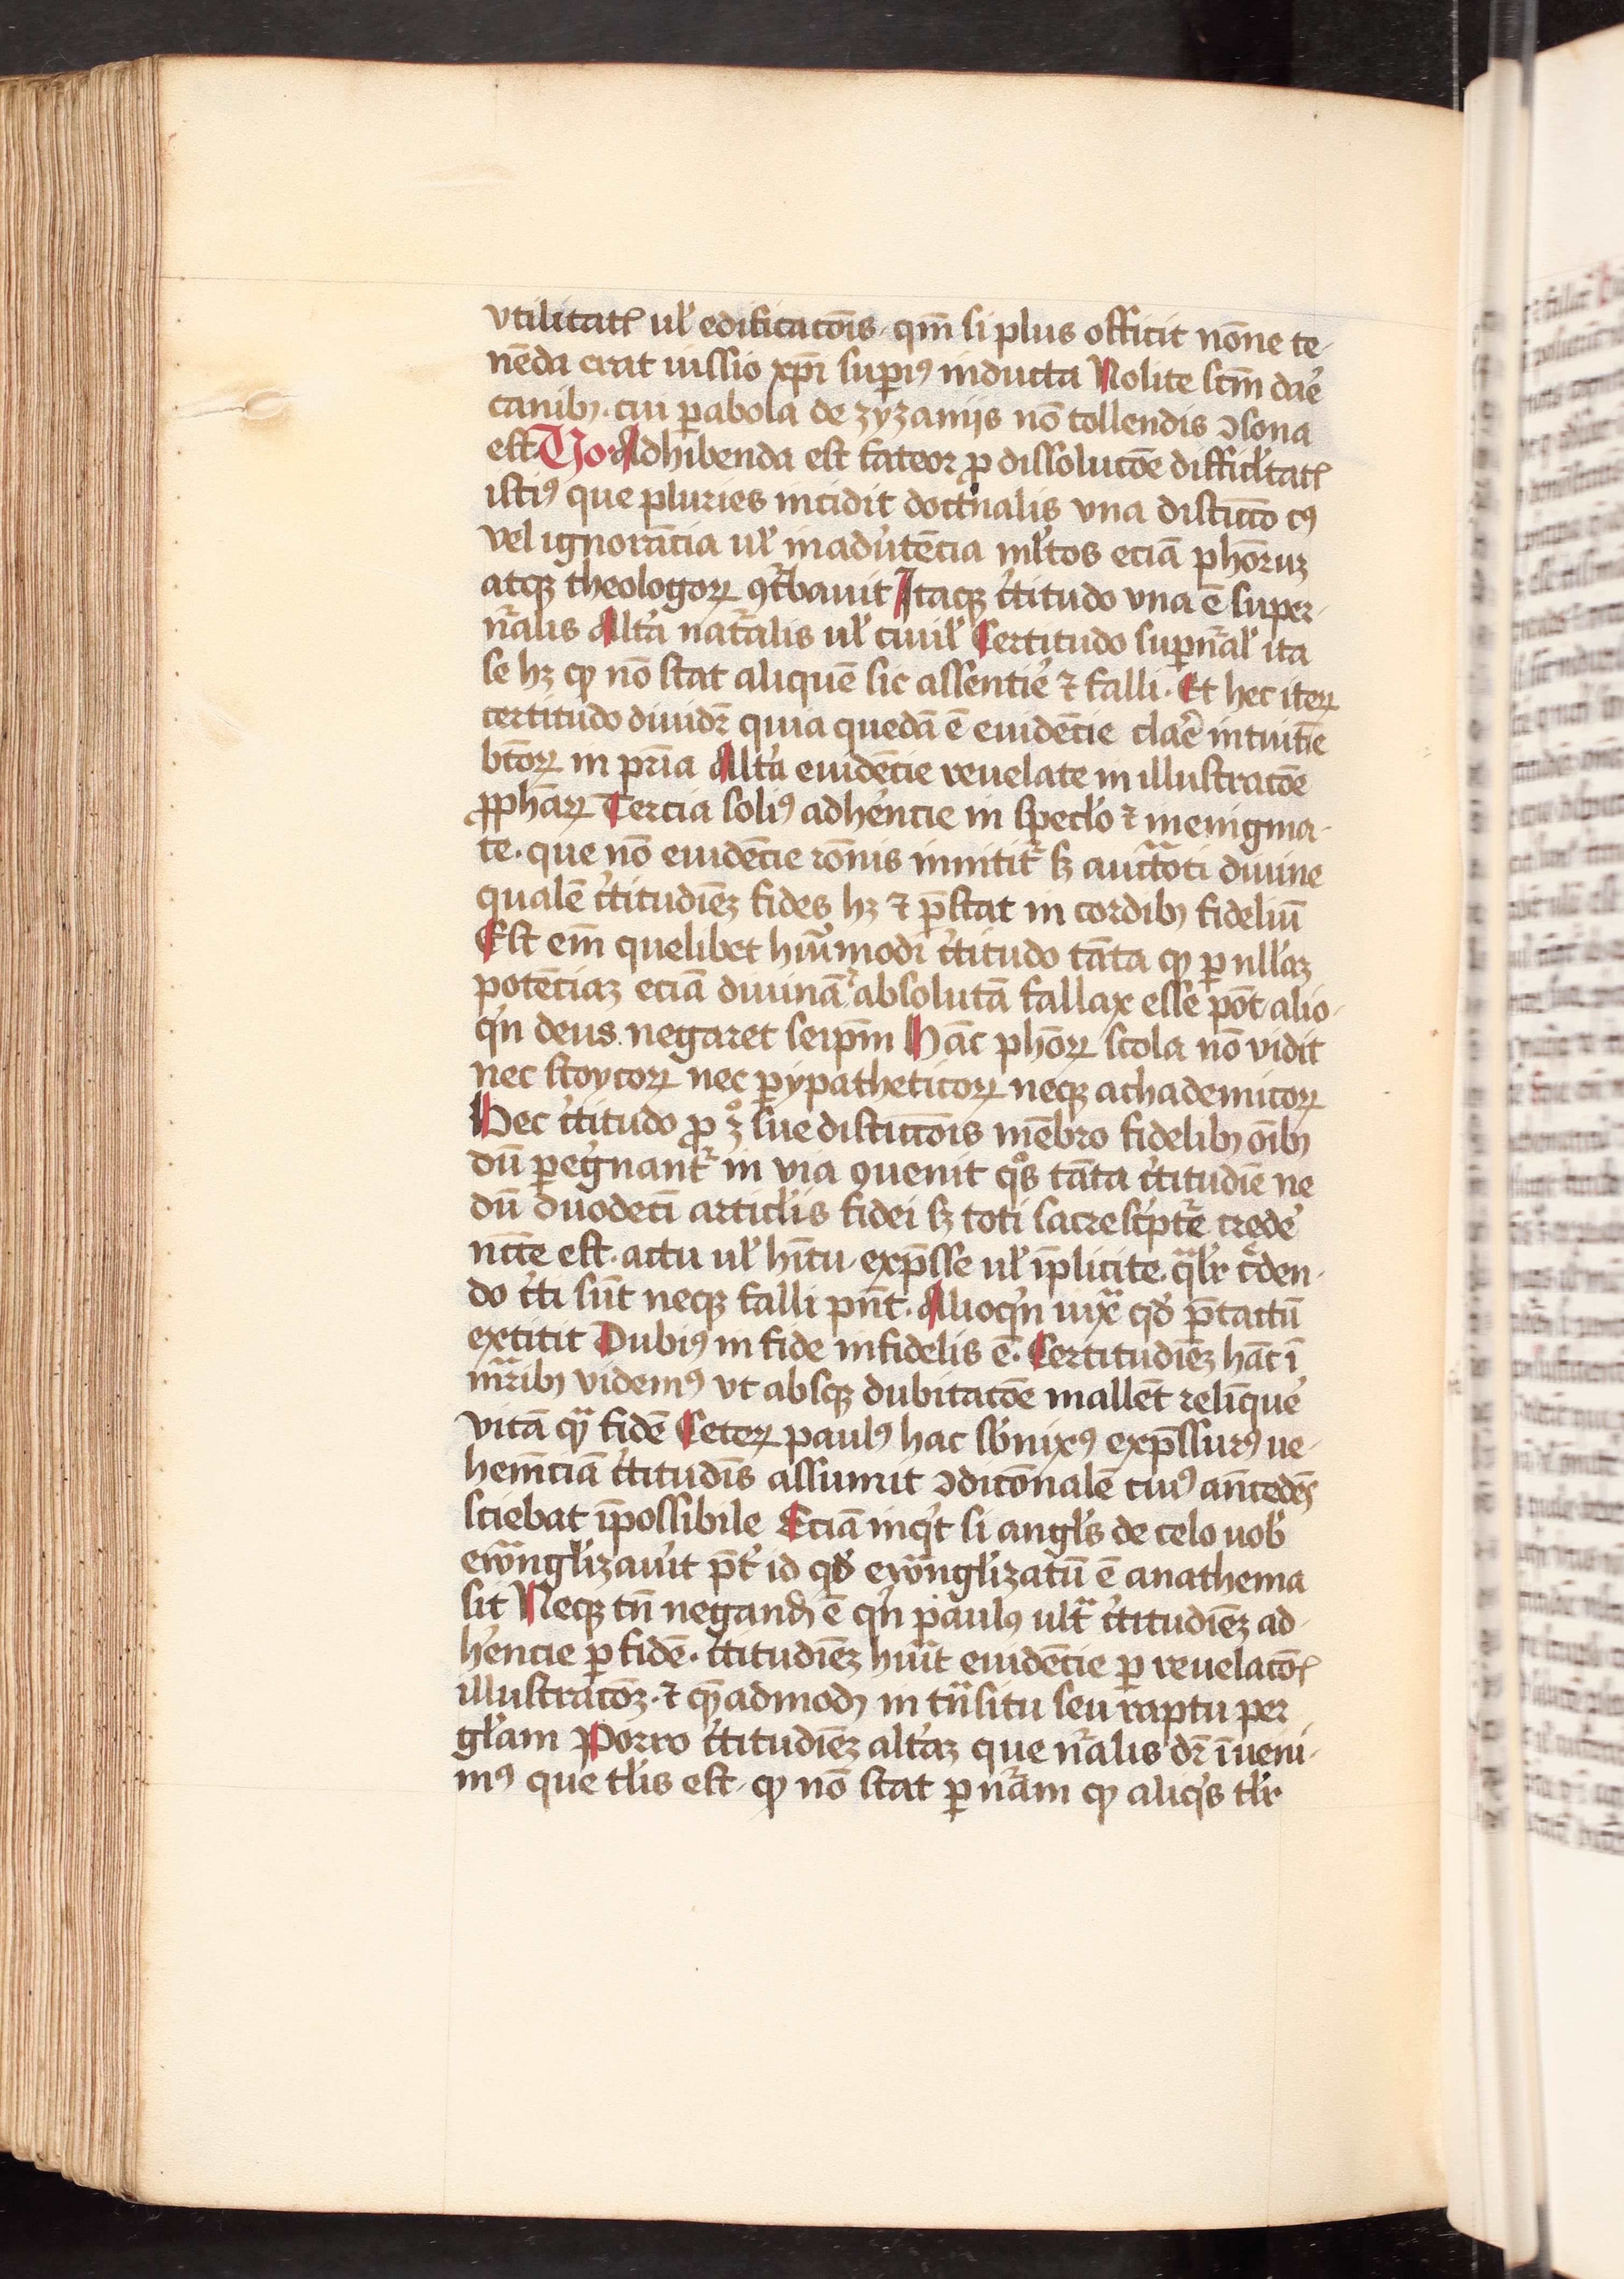 vtilitatꝭ ul̓ edificatōīs · qm̄ si plus officit nōne te-
nēda erat iussio xpi̅ sup̱iꝯ inducta Nolite scm̄ dar̓e
canibꝫ · cui ꝑabola de zyzamijs nō tollendis ↄsona
est No Adhibenda est fateor ꝓ dissolucōe difficl̓tatꝭ
istiꝯ que pluries incidit doctⁱnalis vna distīctō cꝯ
vel ignorācia ul̓ inaduʼtēcia ml̓tos eciā ph̄oruꝫ
atqꝫ theologoꝝ ꝯtʼbauit Itaqꝫ cʼtitudo vna ē super-
nʳalis Altʼa natʳalis ul̓ ciuil̓ Certitudo suꝑnʳal̓ ita
se hꝫ ꝙ nō stat aliquē sic assentirʼe ⁊ falli · Et hec iteꝝ
certitudo diuidr̄ quia quedā ē euidēcie clarʼe intuitīe
btōꝝ in pr̄ia Altʼa euidēcie reuelate in illustracōe
ꝓph̄aꝝ Tercia soliꝯ adhʼencie in specl̓o ⁊ in enigma-
te · que nō euidēcie rōnis innititʳ sꝫ auctᵃoti diuine
qualē cʼtitudīeꝫ fides hꝫ ⁊ p̄stat in cordibꝫ fideliū
Est em̄ quelibet hui̅modi cʼtitudo tāta ꝙ ꝑ nll̓aꝫ
potēciaꝫ eciā diuinā absolutā fallax esse pōt alio-
qⁱn deus negaret seip̄m Hāc ph̄oꝝ scola nō vidit
nec stoycoꝝ nec ꝑypatheticoꝝ neqꝫ achademicoꝝ
Hec cʼtitudo ꝓ 3° sue distīccōis mēbro fidelibꝫ oī̄bꝫ
dū ꝑegⁱnantʳ in via ꝯuenit qᵒs tāta cʼtitudīe ne
dū duodecī articl̓is fidei sꝫ toti sacre scⁱptʳe credeʼ
nc̄c̄e est · actu ul̓ hi̅tu · exp̄sse ul̓ īplicite · qᵃlʼr cʳden-
do cʼti sūt neqꝫ falli pn̄t · Alioqⁱn iuxᵃ qd̓ p̄tactū
extitit Dubiꝯ in fide infidelis ē · Certitudīeꝫ hāc ī
mʳribꝫ videmꝯ vt absqꝫ dubitacōe mallēt relīqueʼ
vitā ꝙᵃ fidē Ceteꝝ paulꝯ hac sb̓nixꝯ exp̄ssurꝯ ue-
hem̄ciā cʼtitudīs assumit ↄdicōnalē cuiꝯ an̄cedēs
sciebat īpossibile Eciā inqⁱt si angl̓s de celo uob̓
ewᵃngl̓izauʼit p̄tʼ id qd̓ ewᵃngl̓izatū ē anathema
sit Neqꝫ tn̄ negandꝫ ē qⁱn paulꝯ ultᵃ cʼtitudīeꝫ ad-
hʼencie ꝑ fidē · cʼtitudīeꝫ huⁱt euidēcie ꝑ reuelacōꝭ
illustracōꝫ · ⁊ qꝫadmodꝫ in tᵃnsitu seu raptu per
gl̓am Porro cʼtitudīeꝫ altʼaꝫ que nʳalis dr̄ īueni-
mꝯ que tl̓is est · ꝙ nō stat ꝑ nʳam ꝙ aliqⁱs tl̓r